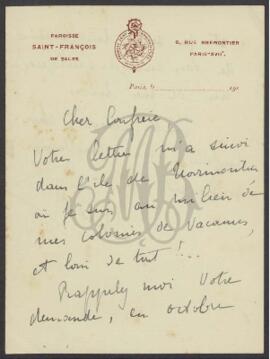 PAROISSE
SAINT-FRANÇOIS
DE SALES
6, RUE BRÉMONTIER
PARIS-XVIIᵉ
Paris, le 191
Cher Confrère
Votre lettre m'a suivi
dans l'île de Noirmoutier
où je suis, au milieu de
mes colonies de vacances,
et loin de tout!..
Rappelez moi votre
demande, en octobre